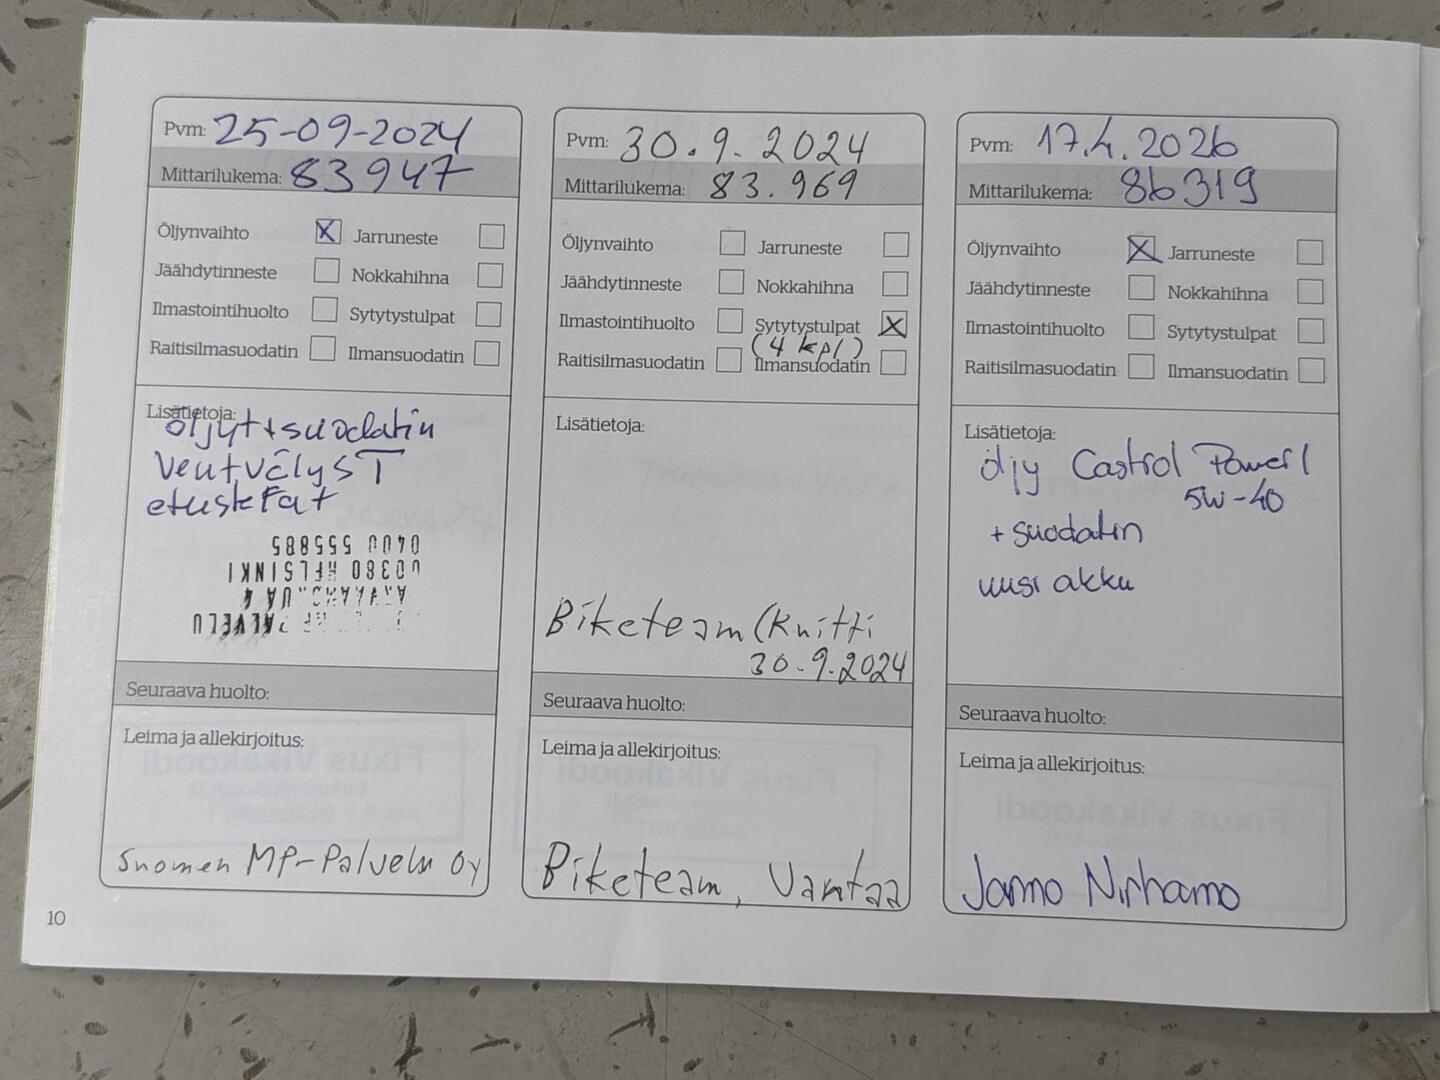 Pvm: 25-09-2024
Mittarilukema: 83947
Öljynvaihto X Jarruneste
Jäähdytinneste Nokkahihna
Ilmastointihuolto Sytytystulpat
Raitisilmasuodatin Ilmansuodatin
Lisätietoja:
öljyt+suodatin
etusteFat
0400 555885
00380 HELSINKI
PALVELU
Seuraava huolto:
Leima ja allekirjoitus:
Suomen MP-Palvelu Oy
10
Pvm: 30.9.2024
Mittarilukema: 83.969
Öljynvaihto Jarruneste
Jäähdytinneste Nokkahihna
Ilmastointihuolto Sytytystulpat X
(4 kpl)
Raitisilmasuodatin Ilmansuodatin
Lisätietoja:
Biketeam (Knitti
30.9.2024
Seuraava huolto:
Leima ja allekirjoitus:
Biketeam, Vantaa
Pvm: 17.4.2026
Mittarilukema: 86319
Öljynvaihto X Jarruneste
Jäähdytinneste Nokkahihna
Ilmastointihuolto Sytytystulpat
Raitisilmasuodatin Ilmansuodatin
Lisätietoja:
öljy Castrol Power1
5W-40
+ suodatin
uusi akku
Seuraava huolto:
Leima ja allekirjoitus:
Jarmo Nirhamo